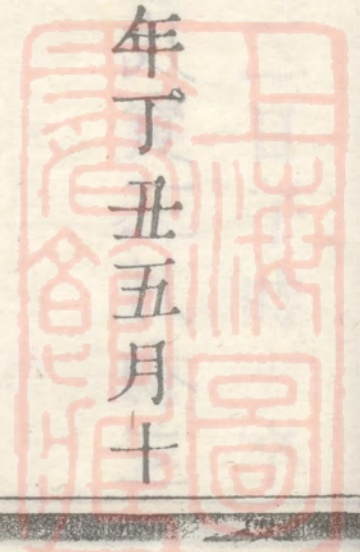 年丁丑五月十
上海圖
書館藏